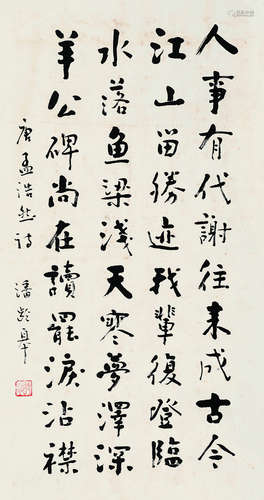 人事有代謝往来成古今
江山留勝迹我輩復登臨
水落鱼梁淺天寒夢澤深
羊公碑尚在讀罷淚沾襟
唐孟浩然詩 潘齡皋